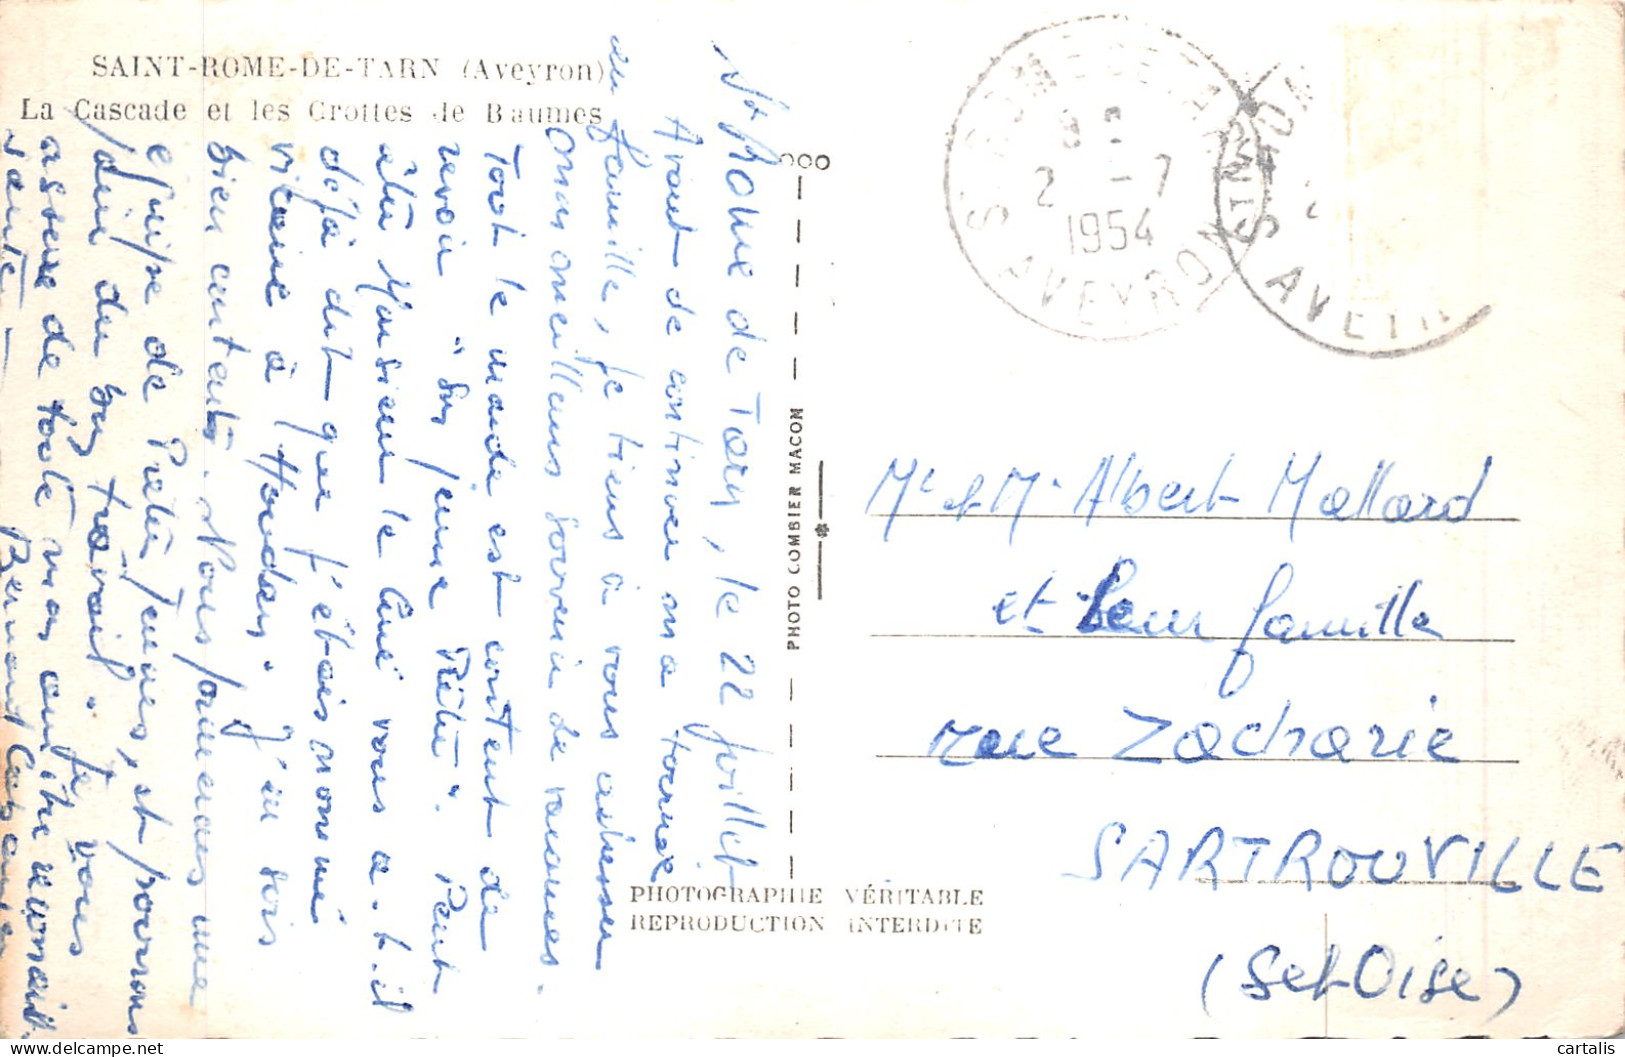 SAINT-ROME-DE-TARN (Aveyron)
La Cascade et les Grottes de Baumes
St Rome de Tarn, le 22 juillet
Avant de continuer ma tournée
en famille, je tiens à vous adresser
mon meilleur souvenir de vacances.
Tout le monde est content de
revoir "Son jeune Prêtre". Peut
être Monsieur le Curé vous a-t-il
déjà dit que j'étais nommé
vicaire à Houdan. J'en suis
bien content. Nous formerons une
équipe de Prêtres jeunes, et pourrons
faire du bon travail. Je vous
assure de toute ma
santé —
Bernard
PHOTO COMBIER MACON
PHOTOGRAPHIE VÉRITABLE
REPRODUCTION INTERDITE
ST ROME DE TARN
2 -7
1954
AVEYRON
AVEYR
Mr et Me Albert Mallard
et leur famille
rue Zacharie
SARTROUVILLE
(S et Oise)
cartalis